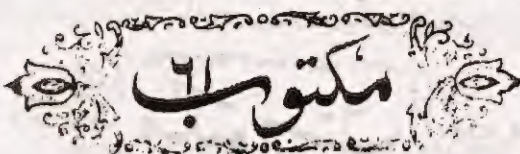 مکتوب ۶۱